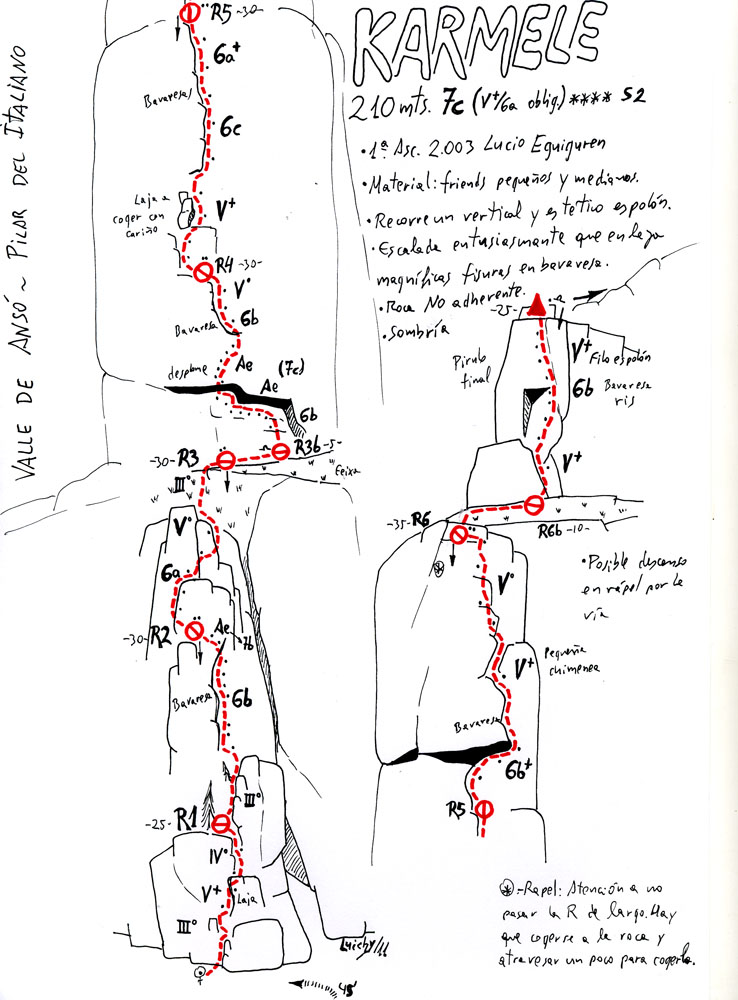 VALLE DE ANSÓ ~ PILAR DEL ITALIANO
KARMELE
210 mts. 7c (V+/6a oblig.) **** S2
·1ª Asc. 2.003 Lucio Eguiguren
·Material: friends pequeños y medianos.
·Recorre un vertical y estético espolón.
·Escalada entusiasmante que enlaza
magníficas fisuras en bavaresa.
·Roca NO adherente.
·Sombría
R5 -30-
6a+
Bavaresas
6c
Laja a
coger con
cariño
V+
R4 -30-
V°
Bavaresa
6b
desplome
Ae
Ae (7c)
6b
R3b -5-
-30- R3
Feixa
III°
V°
6a
-30- R2
Ae
7b
Bavaresa
6b
III°
-25- R1
IV°
V+
Laja
III°
Luichy/11
45'
-25-
Pirulo
final
V+
Filo espolón
6b
Bavaresa
V+
-35- R6
R6b -10-
V°
·Posible descenso
en rápel por la
vía
V+
Pequeña
chimenea
Bavaresa
6b+
R5
-Rapel: Atención a no
pasar la R de largo. Hay
que cogerse a la roca y
atravesar un poco para cogerla.